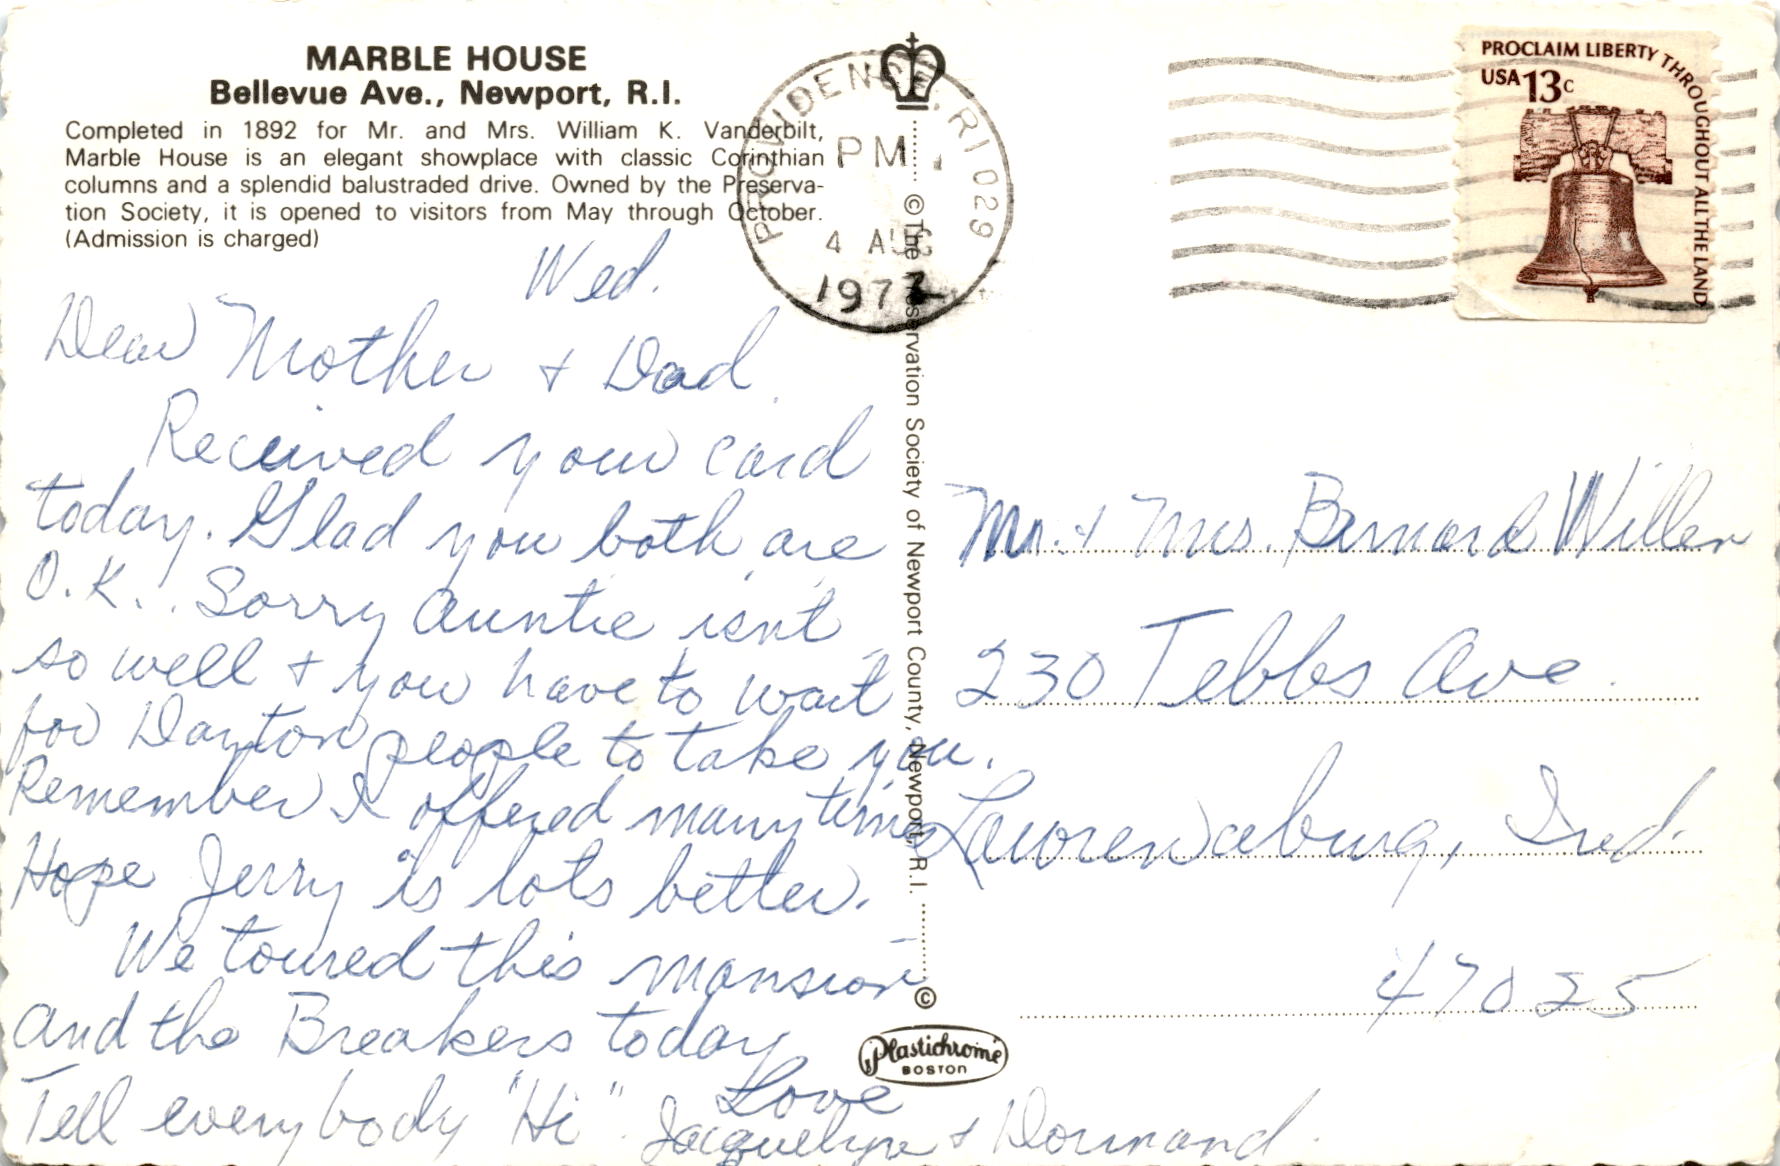 MARBLE HOUSE
Bellevue Ave., Newport, R.I.
Completed in 1892 for Mr. and Mrs. William K. Vanderbilt,
Marble House is an elegant showplace with classic Corinthian
columns and a splendid balustraded drive. Owned by the Preserva-
tion Society, it is opened to visitors from May through October.
(Admission is charged)
Wed.
Dear Mother + Dad
Received your card
today. Glad you both are
O.K.. Sorry Auntie isn't
so well + you have to wait
for Dayton people to take you.
Remember I offered many times
Hope Jerry is lots better.
We toured this mansion
and the Breakers today
Tell everybody "Hi".
Love
Jacquelyn + Dormand.
© The Preservation Society of Newport County, Newport, R.I.
©
Plastichrome
BOSTON
PROVIDENCE, RI 029
PM
4 AUG
1977
PROCLAIM LIBERTY THROUGHOUT ALL THE LAND
USA 13c
Mr. + Mrs. Bernard Willen
230 Tebbs Ave.
Lawrenceburg, Ind.
47025